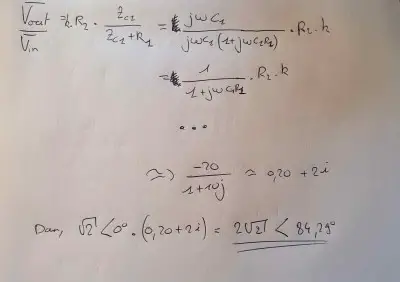 V̅out / V̅in = k.R2 . Zc1 / (Zc1 + R1) = jωC1 / (jωC1 (1+jωC1R1)) . R2 . k
= 1 / (1+jωC1R1) . R2 . k
...
≈> -20 / (1+10j) ≈ 0,20 + 2i
Dan, √2 < 0° . (0,20+2i) = 2√2 < 84,29°